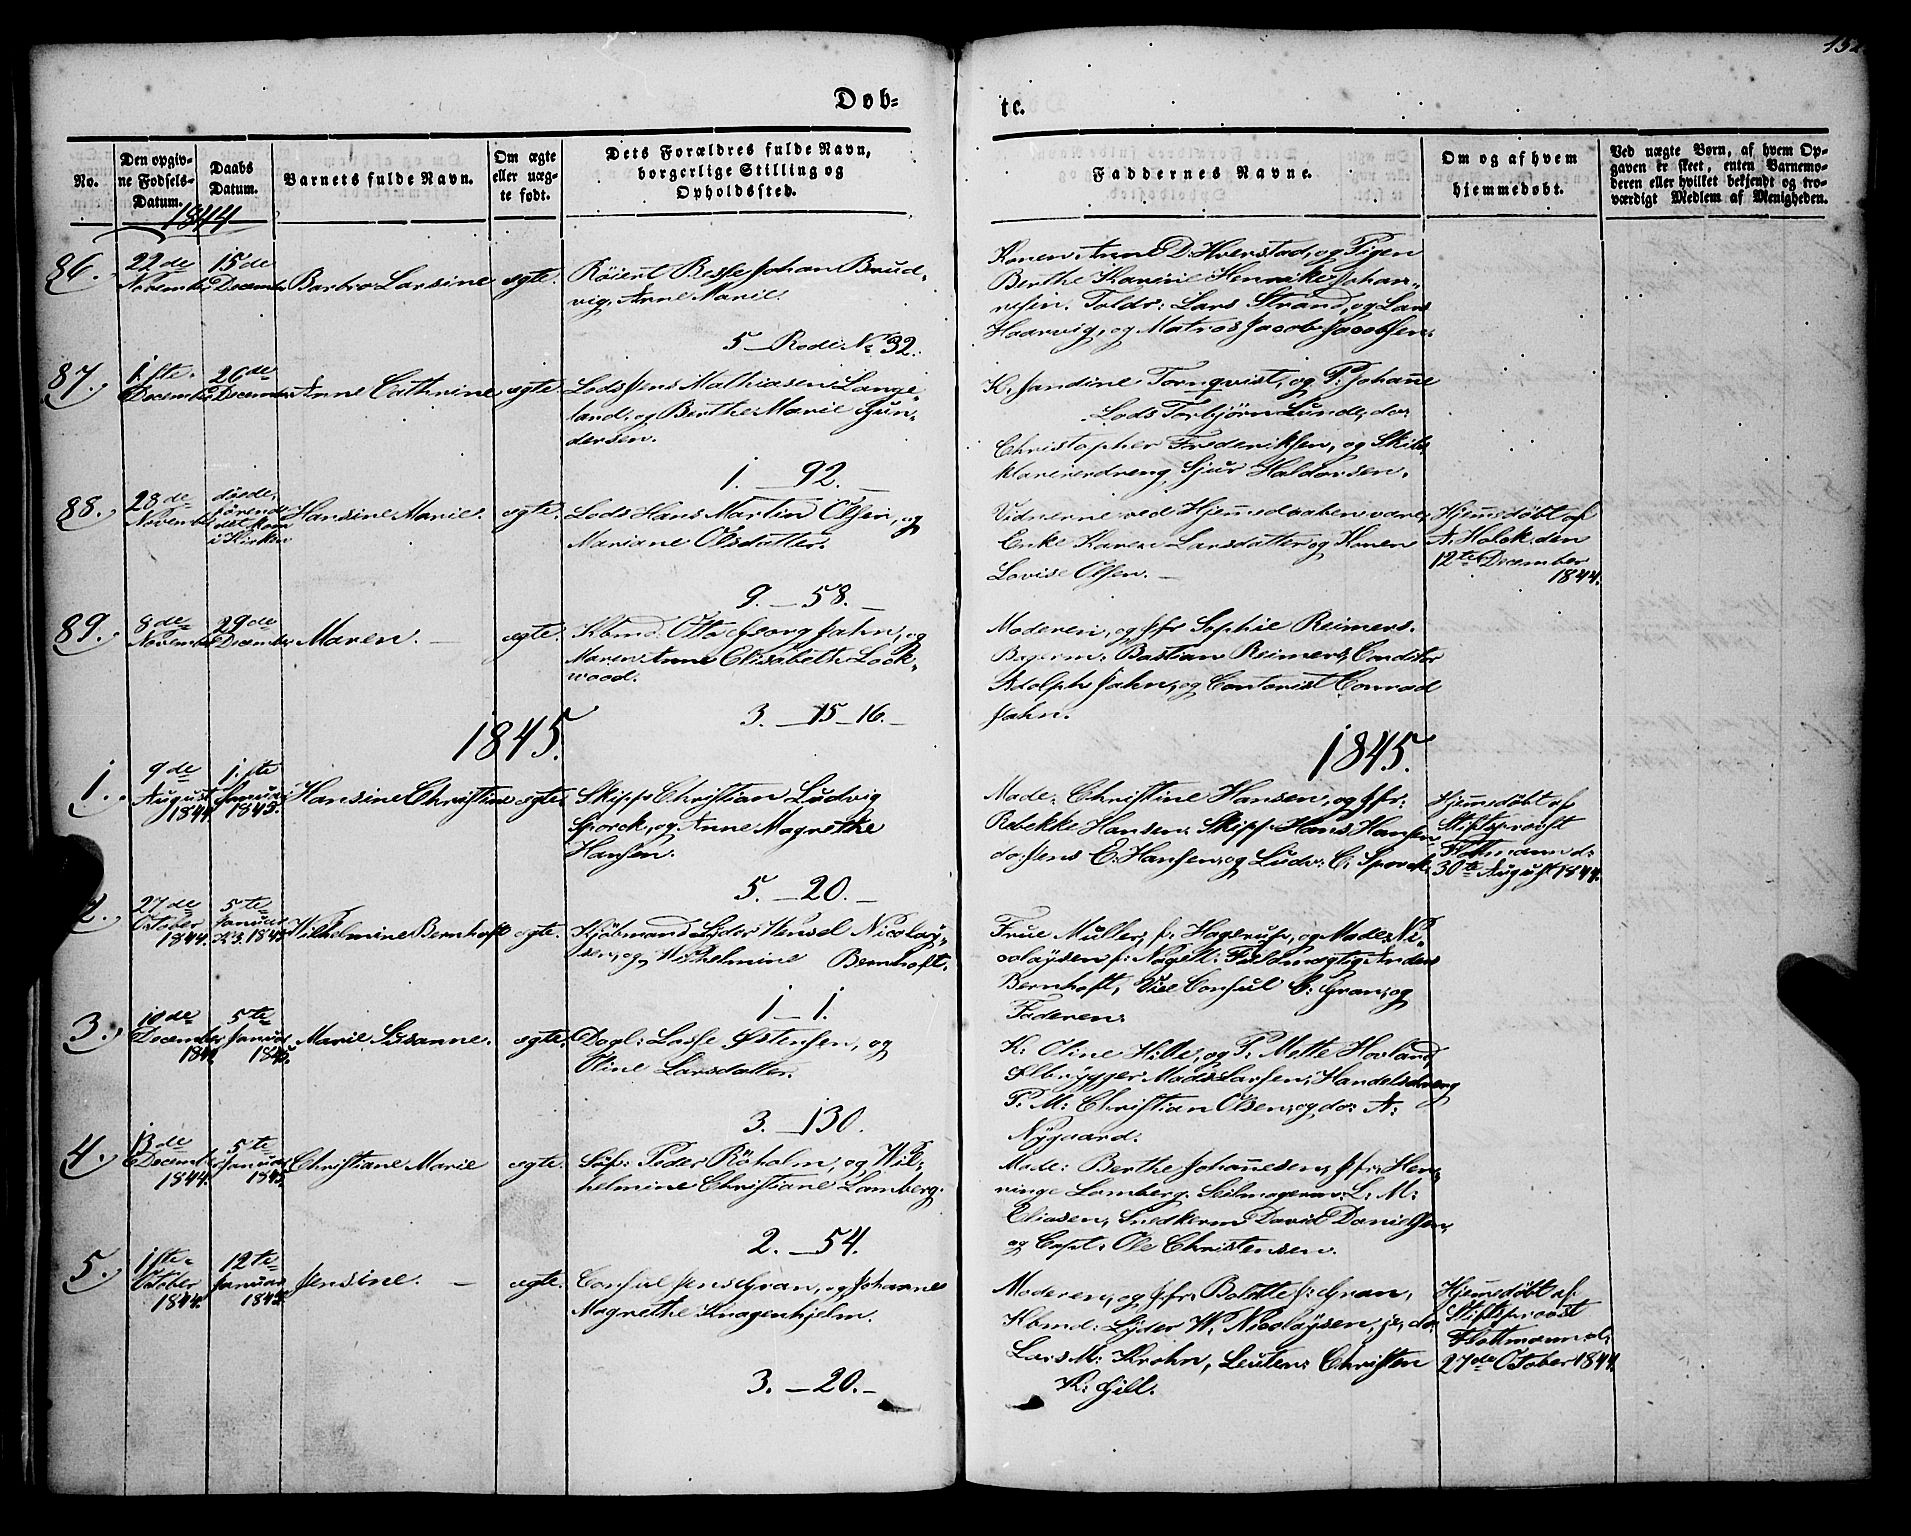 152
Døb-
te.
No.
Den opgiv-
ne Fødsels-
Datum.
Daabs
Datum.
Barnets fulde Navn.
Om ægte
eller uæg-
te født.
Dets Forældres fulde Navn,
borgerlige Stilling og
Opholdssted.
Faddernes Navne.
Om og af hvem
hjemmedøbt.
Ved uægte Børn, af hvem Op-
gaven er skeet, enten Barnemo-
deren eller hvilket bekjendt og tro-
værdigt Medlem af Menigheden.
1844
86.
22de
November
15de
December
Barbro Larsine
ægte.
Røiert Besse Johan Brud-
vig, Anne Marie.
5 _ Rode No 32.
Konen Anne D. Hverstad, og Pigen
Berthe Karine Henrikke Johan-
nesen. Toldr: Lars Strand, og Lars
Haarvig, og Matros Jacob Jacobsen.
87.
1ste
December
26de
December
Anne Cathrine
ægte.
Lods Jens Mathiasen Lange-
land, og Berthe Marie Gun-
dersen.
1. _ 92. _
K. Jandine Tornqvist, og P. Johanne
Lods Torbjørn Lunde, do:
Christopher Frederiksen, og Skibs
klarererdreng Sjur Haldorsen.
88.
28de
November
døde,
førend
det kom
i Kirken
Hansine Marie.
ægte.
Lods Hans Martin Olsen, og
Mariane Olsdatter.
9. _ 58. _
Vidnerne ved Hjemmedaaben vare,
Enke Karen Larsdatter og Konen
Lovise Olsen. _
Hjemmedøbt af
A. Holck den
12te December
1844.
89.
8de
November
29de
December
Maren. _
ægte.
Kbmd. Otto Georg Jahn, og
Maren Anne Elisabeth Lock-
wood.
3. _ 15 _ 16. _
Moderen, og Jfr Sophie Reimers.
Bagerm: Bastian Reimers, Conditor
Adolph Jahn, og Contorist Conrad
Jahn.
1845.
1845.
1.
9de
August
1844.
1ste
Januar
1845.
Hansine Christine
ægte.
Skipp: Christian Ludvig
Sporck, og Anne Magrethe
Hansen.
5. _ 20. _
Made: Christine Hansen, og Jfr:
Rebekke Hansen, Skipp: Hans Hansen
do: Jens E: Hansen, og Ludv: C. Sporck
Hjemmedøbt af
Stiftsprovst
Flottmann d:
30te August 1844.
2.
27de
October
1844.
5te
Januar
1845
Wilhelmine Bernhoft
ægte.
Kjøbmand Lyder Wensel Nicolay-
sen, og Wilhelmine Bernhoft.
1 _ 1.
Frue Müller, f: Hagerup, og Made: Ni-
colaysen f: Nagell: Fuldmægtig Anders
Bernhoft, Vice Consul C: Gran, og
Faderen.
3.
10de
December
1844
5te
Januar
1845.
Marie Susanne.
ægte.
Dagl: Lasse Østensen, og
Oline Larsdatter.
3. _ 130.
K: Oline Hille, og P: Mette Hovland,
Ølbrygger Mads Larsen, Handelsdreng
P. M: Christian Olsen, og do: A:
Nygaard.
4.
13de
Decemb
1844.
5te
Januar
1845.
Christiane Marie
ægte.
Søf: Peder Røholm, og Wil-
helmine Christiane Lamberg.
2. _ 54.
Made: Berthe Johannesen, Jfr: Hen-
ringe Lamberg. Seilmagersv: L: M:
Eliasen, Snedkerm David Danielsen,
og Capt: Ole Christensen.
5.
1ste
October
1844.
12te
Januar
1845.
Jensine. _
ægte.
Consul Jens Gran, og Johanne
Magrethe Knagenhjelm.
3. _ 20. _
Moderen, og Jfr: Bolette f: Gran,
Kbmd: Lyder W. Nicolaysen, jr, do
Lars M: Krohn, Leuten: Christen
K: Gill.
Hjemmedøbt af:
Stiftsprovst
Flottmann d:
27de October 1844.